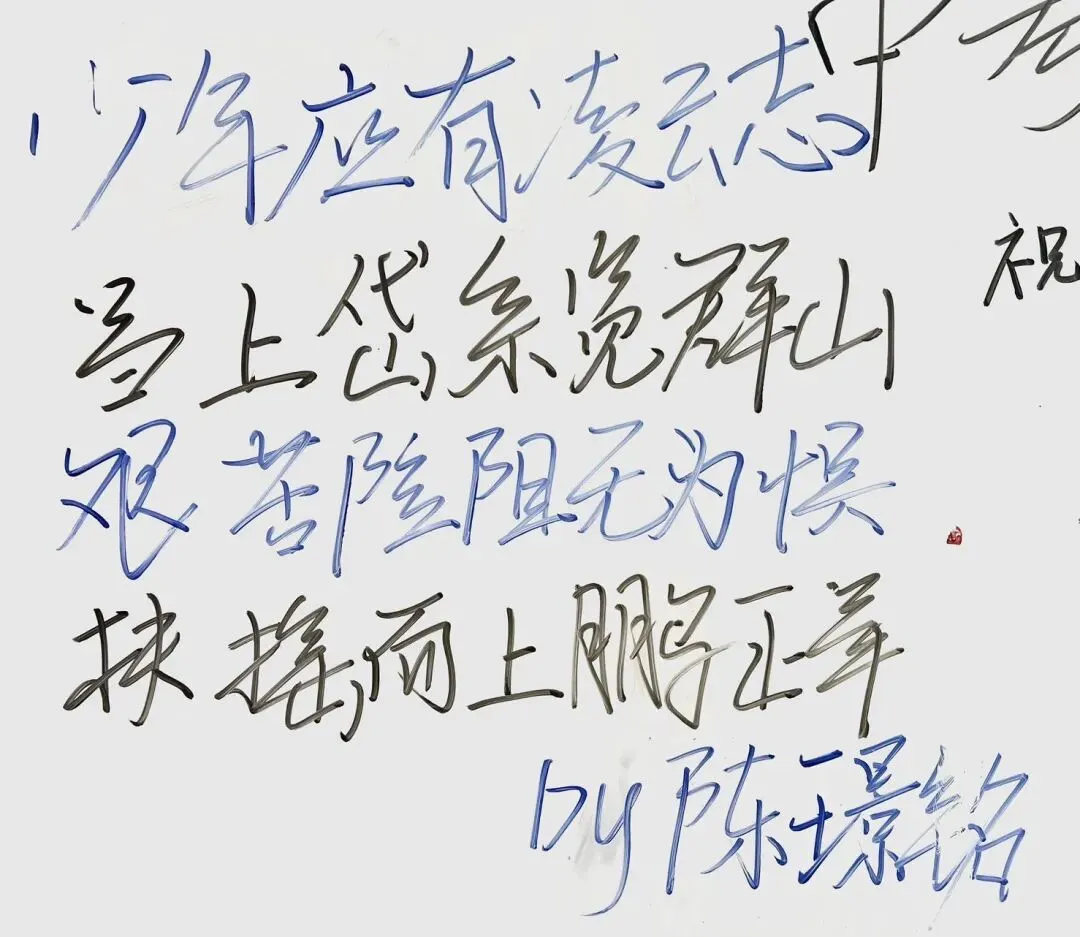 少年应有凌云志 中
当上岱宗览群山 祝
艰苦险阻无为惧
扶摇而上鹏正举
by 陈璟铭